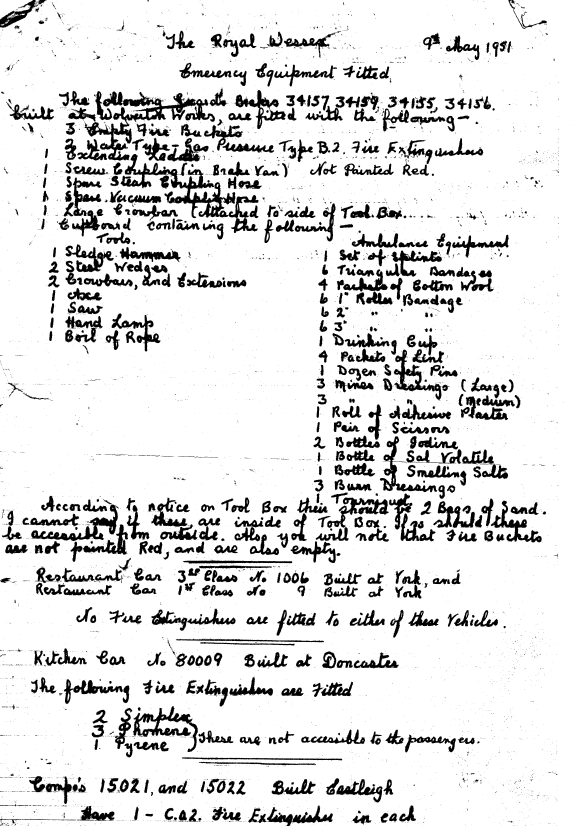 The Royal Wessex 9th May 1951
Emerency Equipment Fitted.
The following Seconds Brakes 34157, 34159, 34155, 34156.
Built at Wolverton Works, are fitted with the following —.
3 Empty Fire Buckets
2 Water Type - Gas Pressure Type B.2. Fire Extinguishers
1 Extending Ladder
1 Screw Coupling (in Brake Van) Not Painted Red.
1 Spare Steam Coupling Hose
1 Spare Vacuum Coupling Hose.
1 Large Crowbar (Attached to side of Tool Box.
1 Cupboard containing the following —
Tools.
1 Sledge Hammer
2 Steel Wedges
2 Crowbars, and Extensions
1 Axe
1 Saw
1 Hand Lamp
1 Coil of Rope
Ambulance Equipment
1 Set of Splints
6 Triangular Bandages
4 Packets of Cotton Wool
6 1" Roller Bandage
6 2" " "
6 3" " "
1 Drinking Cup
4 Packets of Lint
1 Dozen Safety Pins
3 Mines Dressings (Large)
3 " " (Medium)
1 Roll of Adhesive Plaster
1 Pair of Scissors
2 Bottles of Iodine
1 Bottle of Sal Volatile
1 Bottle of Smelling Salts
3 Burn Dressings
1 Tourniquet
According to notice on Tool Box their should be 2 Bags of Sand.
I cannot say if these are inside of Tool Box. If so should these
be accessible from outside. Also you will note that Fire Buckets
are not painted Red, and are also empty.
Restaurant Car 3rd Class No 1006 Built at York, and
Restaurant Car 1st Class No 9 Built at York
No Fire Extinguishers are fitted to either of these Vehicles.
Kitchen Car No 80009 Built at Doncaster
The following Fire Extinguishers are Fitted
2 Simplex
3 Phomene
1 Pyrene
These are not accesible to the passengers.
Compo's 15021, and 15022 Built Eastleigh
Have 1 - C.O.2. Fire Extinguisher in each